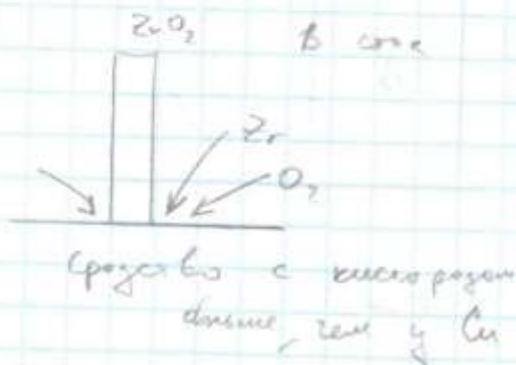 ZrO₂
В
Zr
O₂
Сродство с кислородом
больше, чем у Cu